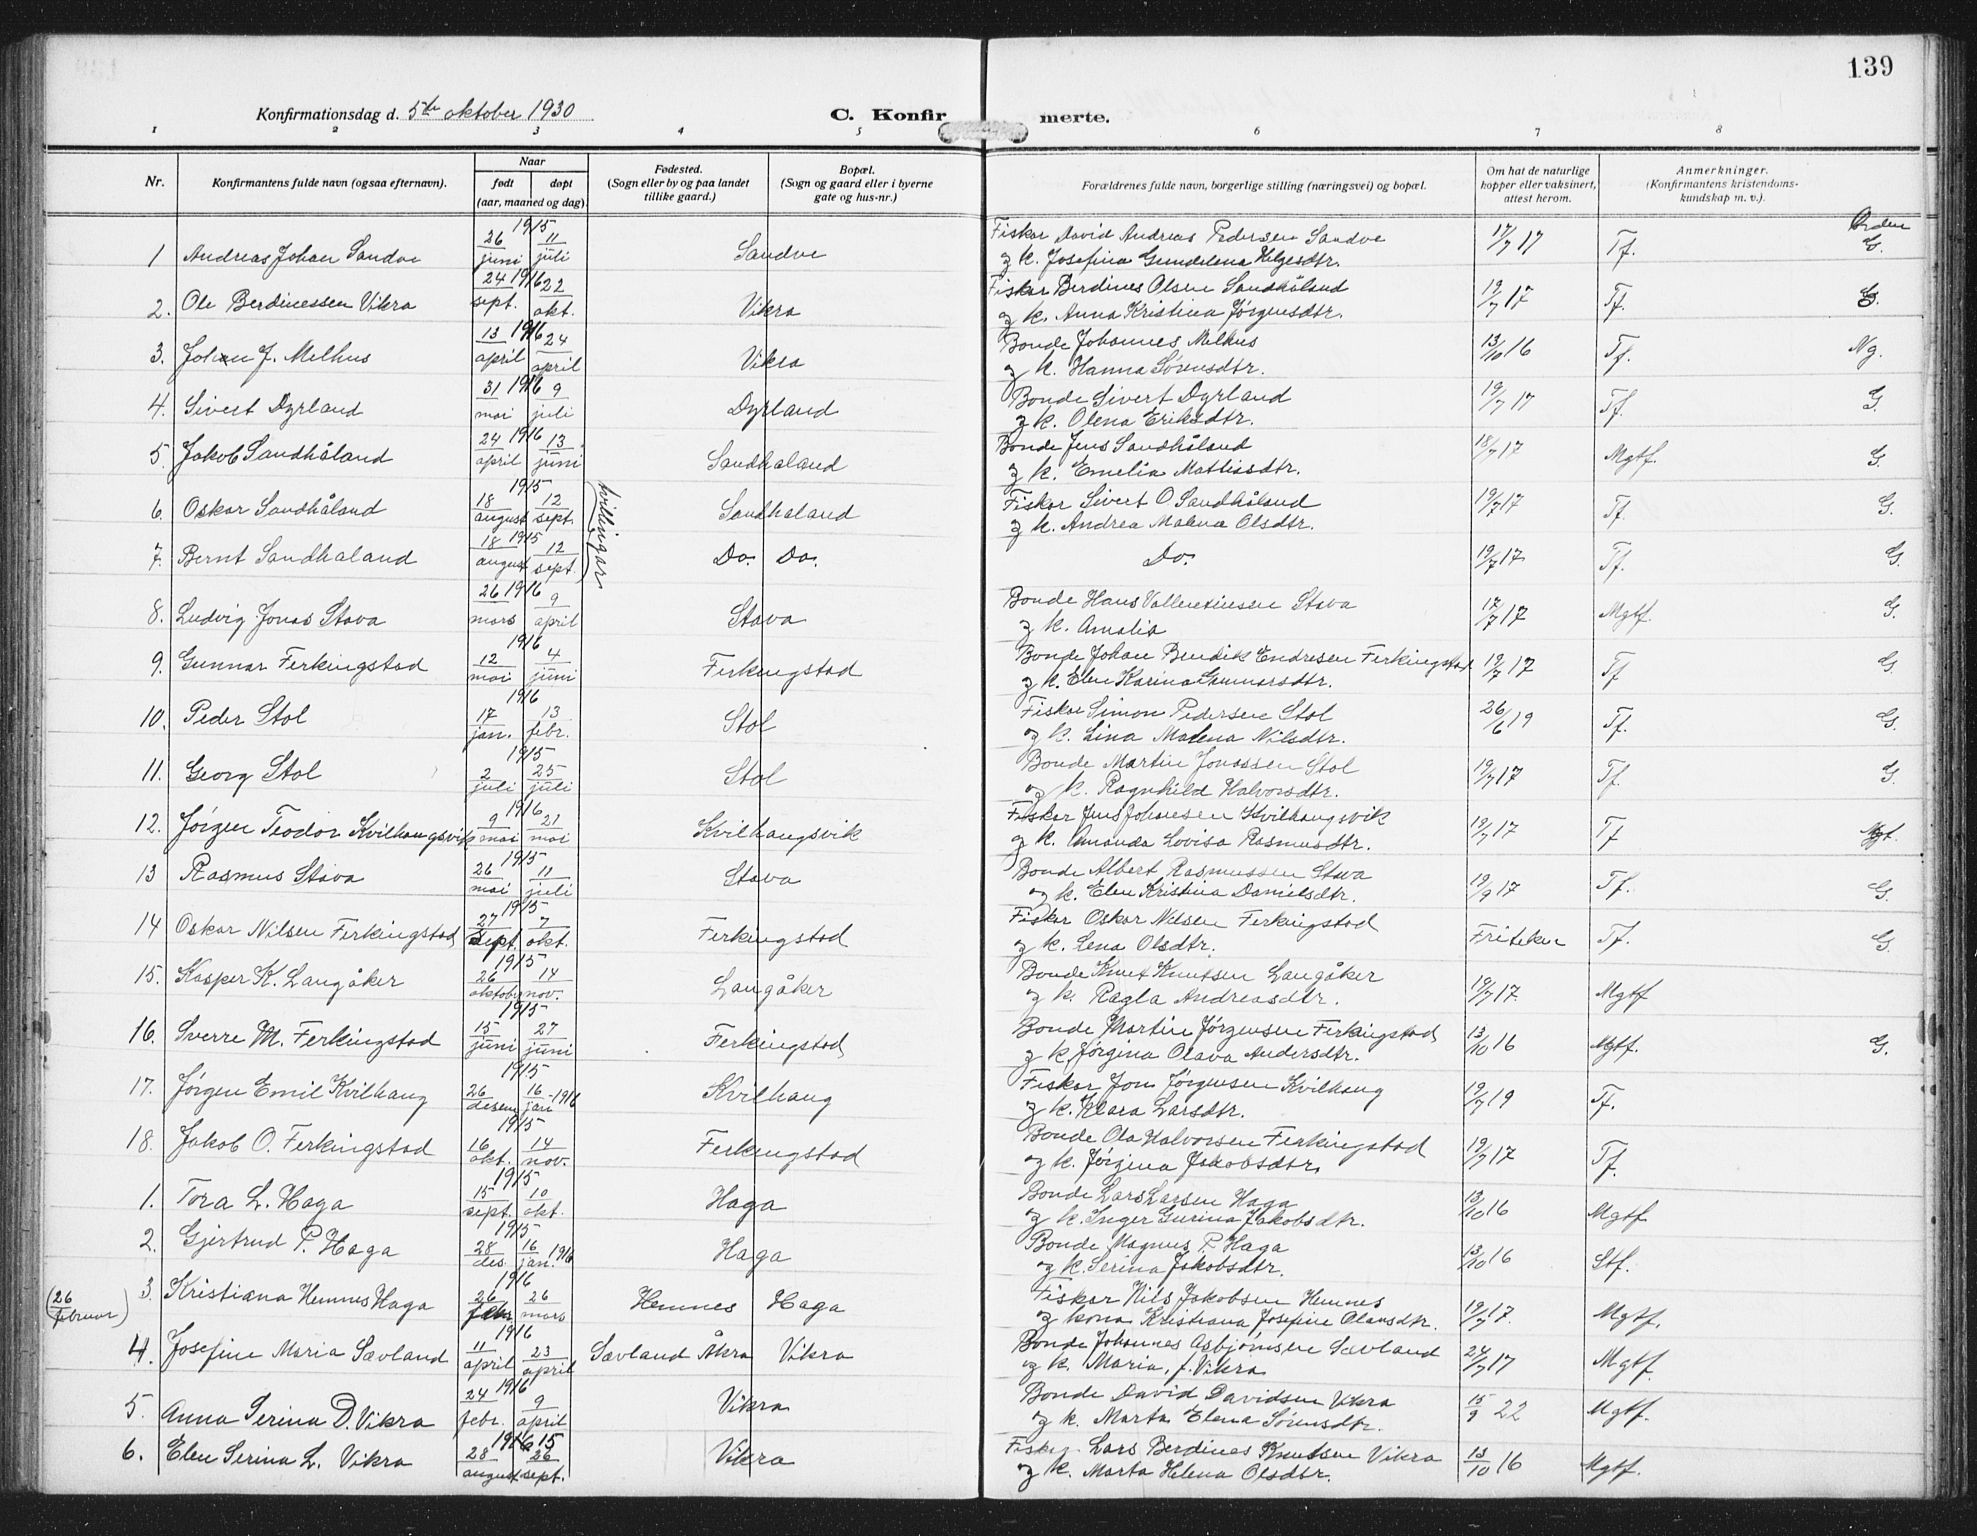 139
Konfirmationsdag d. 5te oktober 1930 C. Konfirmerte.
1 2 3 4 5 6 7 8
Nr. Konfirmantens fulde navn (ogsaa efternavn). Naar født døpt (aar, maaned og dag). Fødested. (Sogn eller by og paa landet tillike gaard.) Bopæl. (Sogn og gaard eller i byerne gate og hus-nr.) Forældrenes fulde navn, borgerlige stilling (næringsvei) og bopæl. Om hat de naturlige kopper eller vaksinert, attest herom. Anmerkninger. (Konfirmantens kristendomskundskap m. v.).
Orden
1 Andreas Johan Sandve 1915 26 juni 11 juli Sandve Fiskar David Andreas Pedersen Sandve 17/7 17 Tf. G.
og k. Josefina Gundelena Helgesdtr.
2. Ole Berdinessen Vikra 1916 24 sept. 22 okt. Vikra Fiskar Berdines Olsen Sandhåland 19/7 17 Tf. G.
og k. Anna Kristina Jørgensdtr.
3. Johan J. Melhus 1916 13 april 24 april Vikra Bonde Johannes Melhus 13/10 16 Tf. Ng.
og k. Hanna Sørensdtr.
4. Sivert Dyrland 1916 31 mai 9 juli Dyrland Bonde Sivert Dyrland 19/7 17 Tf. G.
og k. Olena Eriksdtr.
5. Jakob Sandhåland 1916 24 april 13 juni Sandhaland Bonde Jens Sandhåland 18/7 17 Mgtf. G.
og k. Emelia Mattiasdtr.
6. Oskar Sandhåland 1915 18 august 12 sept. tvillingar Sandhaland Fiskar Sivert O. Sandhåland 19/7 17 Tf. G.
og k. Andrea Malena Olsdtr.
7. Bernt Sandhaland 1915 18 august 12 sept. Do. Do. Do. 19/7 17 Tf. G.
8. Ludvig Jonas Stava 1916 26 mars 9 april Stava Bonde Hans Vallentinsen Stava 17/7 17 Mgtf. G.
og k. Amalia
9. Gunnar Ferkingstad 1916 12 mai 4 juni Ferkingstad Bonde Johan Bendik Endresen Ferkingstad 19/7 17 Tf G.
og k. Elen Karina Gunnarsdtr.
10. Peder Stol 1916 17 jan. 13 febr. Stol Fiskar Simon Pedersen Stol 26/6 19 Tf. G.
og k. Lina Malena Nilsdtr.
11. Georg Stol 1915 2 juli 25 juli Stol Bonde Martin Jonassen Stol 19/7 17 Tf. G.
og k. Ragnhild Halvorsdtr.
12. Jørgen Teodor Kvilhaugsvik 1916 9 mai 21 mai Kvilhaugsvik Fiskar Jens Johansen Kvilhaugsvik 19/7 17 Tf Mgt.
og k. Amanda Lovisa Rasmusdtr.
13 Rasmus Stava 1915 26 mai 11 juli Stava Bonde Albert Rasmussen Stava 19/9 17 Tf. G.
og k. Elen Kristina Danielsdtr.
14 Oskar Nilsen Ferkingstad 1915 27 sept. 7 okt. Ferkingstad Fiskar Oskar Nilsen Ferkingstad Friteken Tf. G.
og k. Lena Olsdtr.
15. Kasper K. Langåker 1915 26 oktober 14 nov. Langåker Bonde Knut Knutsen Langåker 19/7 17 Mgtf
og k. Ragla Andreasdtr.
16. Sverre M. Ferkingstad 1915 15 juni 27 juni Ferkingstad Bonde Martin Jørgensen Ferkingstad 13/10 16 Mgtf. G.
og k. Jørgina Olava Andersdtr.
17. Jørgen Emil Kvilhaug 1915 26 desem 16 jan 1916 Kvilhaug Fiskar Jon Jørgensen Kvilhaug 19/7 19 Tf.
og k. Klara Larsdtr.
18. Jakob O. Ferkingstad 1915 16 okt. 14 nov. Ferkingstad Bonde Ola Halvorsen Ferkingstad 19/7 17 Tf.
og k. Jørgina Jakobsdtr.
1. Tora L. Haga 1915 15 sept. 10 okt. Haga Bonde Lars Larsen Haga 13/10 16 Mgtf
og k. Inger Gurina Jakobsdtr.
2. Gjertrud P. Haga 1915 28 des. 16 jan. 1916 Haga Bonde Magnus P. Haga 13/10 16 Stf.
og k. Serina Jakobsdtr.
(26 februar) 3. Kristiana Hemnes Haga 1916 26 febr 26 mars Hemnes Haga Fiskar Nils Jakobsen Hemnes 19/7 17. Mgtf.
og kona Kristiana Josefine Olausdtr.
4. Josefine Maria Sævland 1916 11 april 23 april Sævland Åkra Vikra Bonde Johannes Asbjørnsen Sævland 24/7 17 Mgtf.
og k. Maria, f. Vikra
5. Anna Serina D. Vikra 1916 24 febr. 9 april Vikra Bonde David Davidsen Vikra 15/9 22 Mgtf.
og k. Marta Elena Sørensdtr.
6. Elen Serina L. Vikra 1915 28 august 26 sept. Vikra Fiskar Lars Berdines Knutsen Vikra 13/10 16 Mgtf.
og k. Marta Helena Olsdtr.